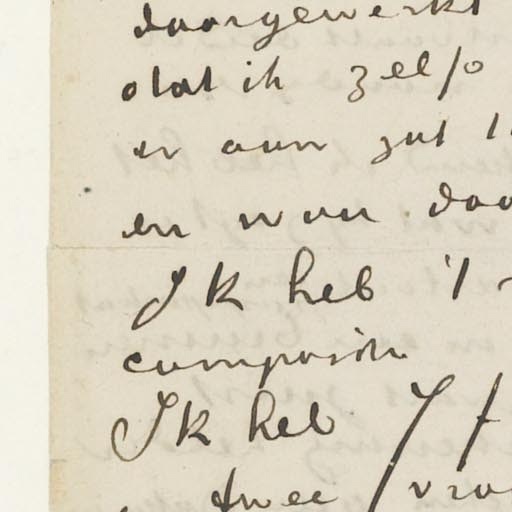 doorgewerkt
dat ik zelfs
er aan zat
en wou doo
Ik heb 't
composit
Ik heb
twee vro